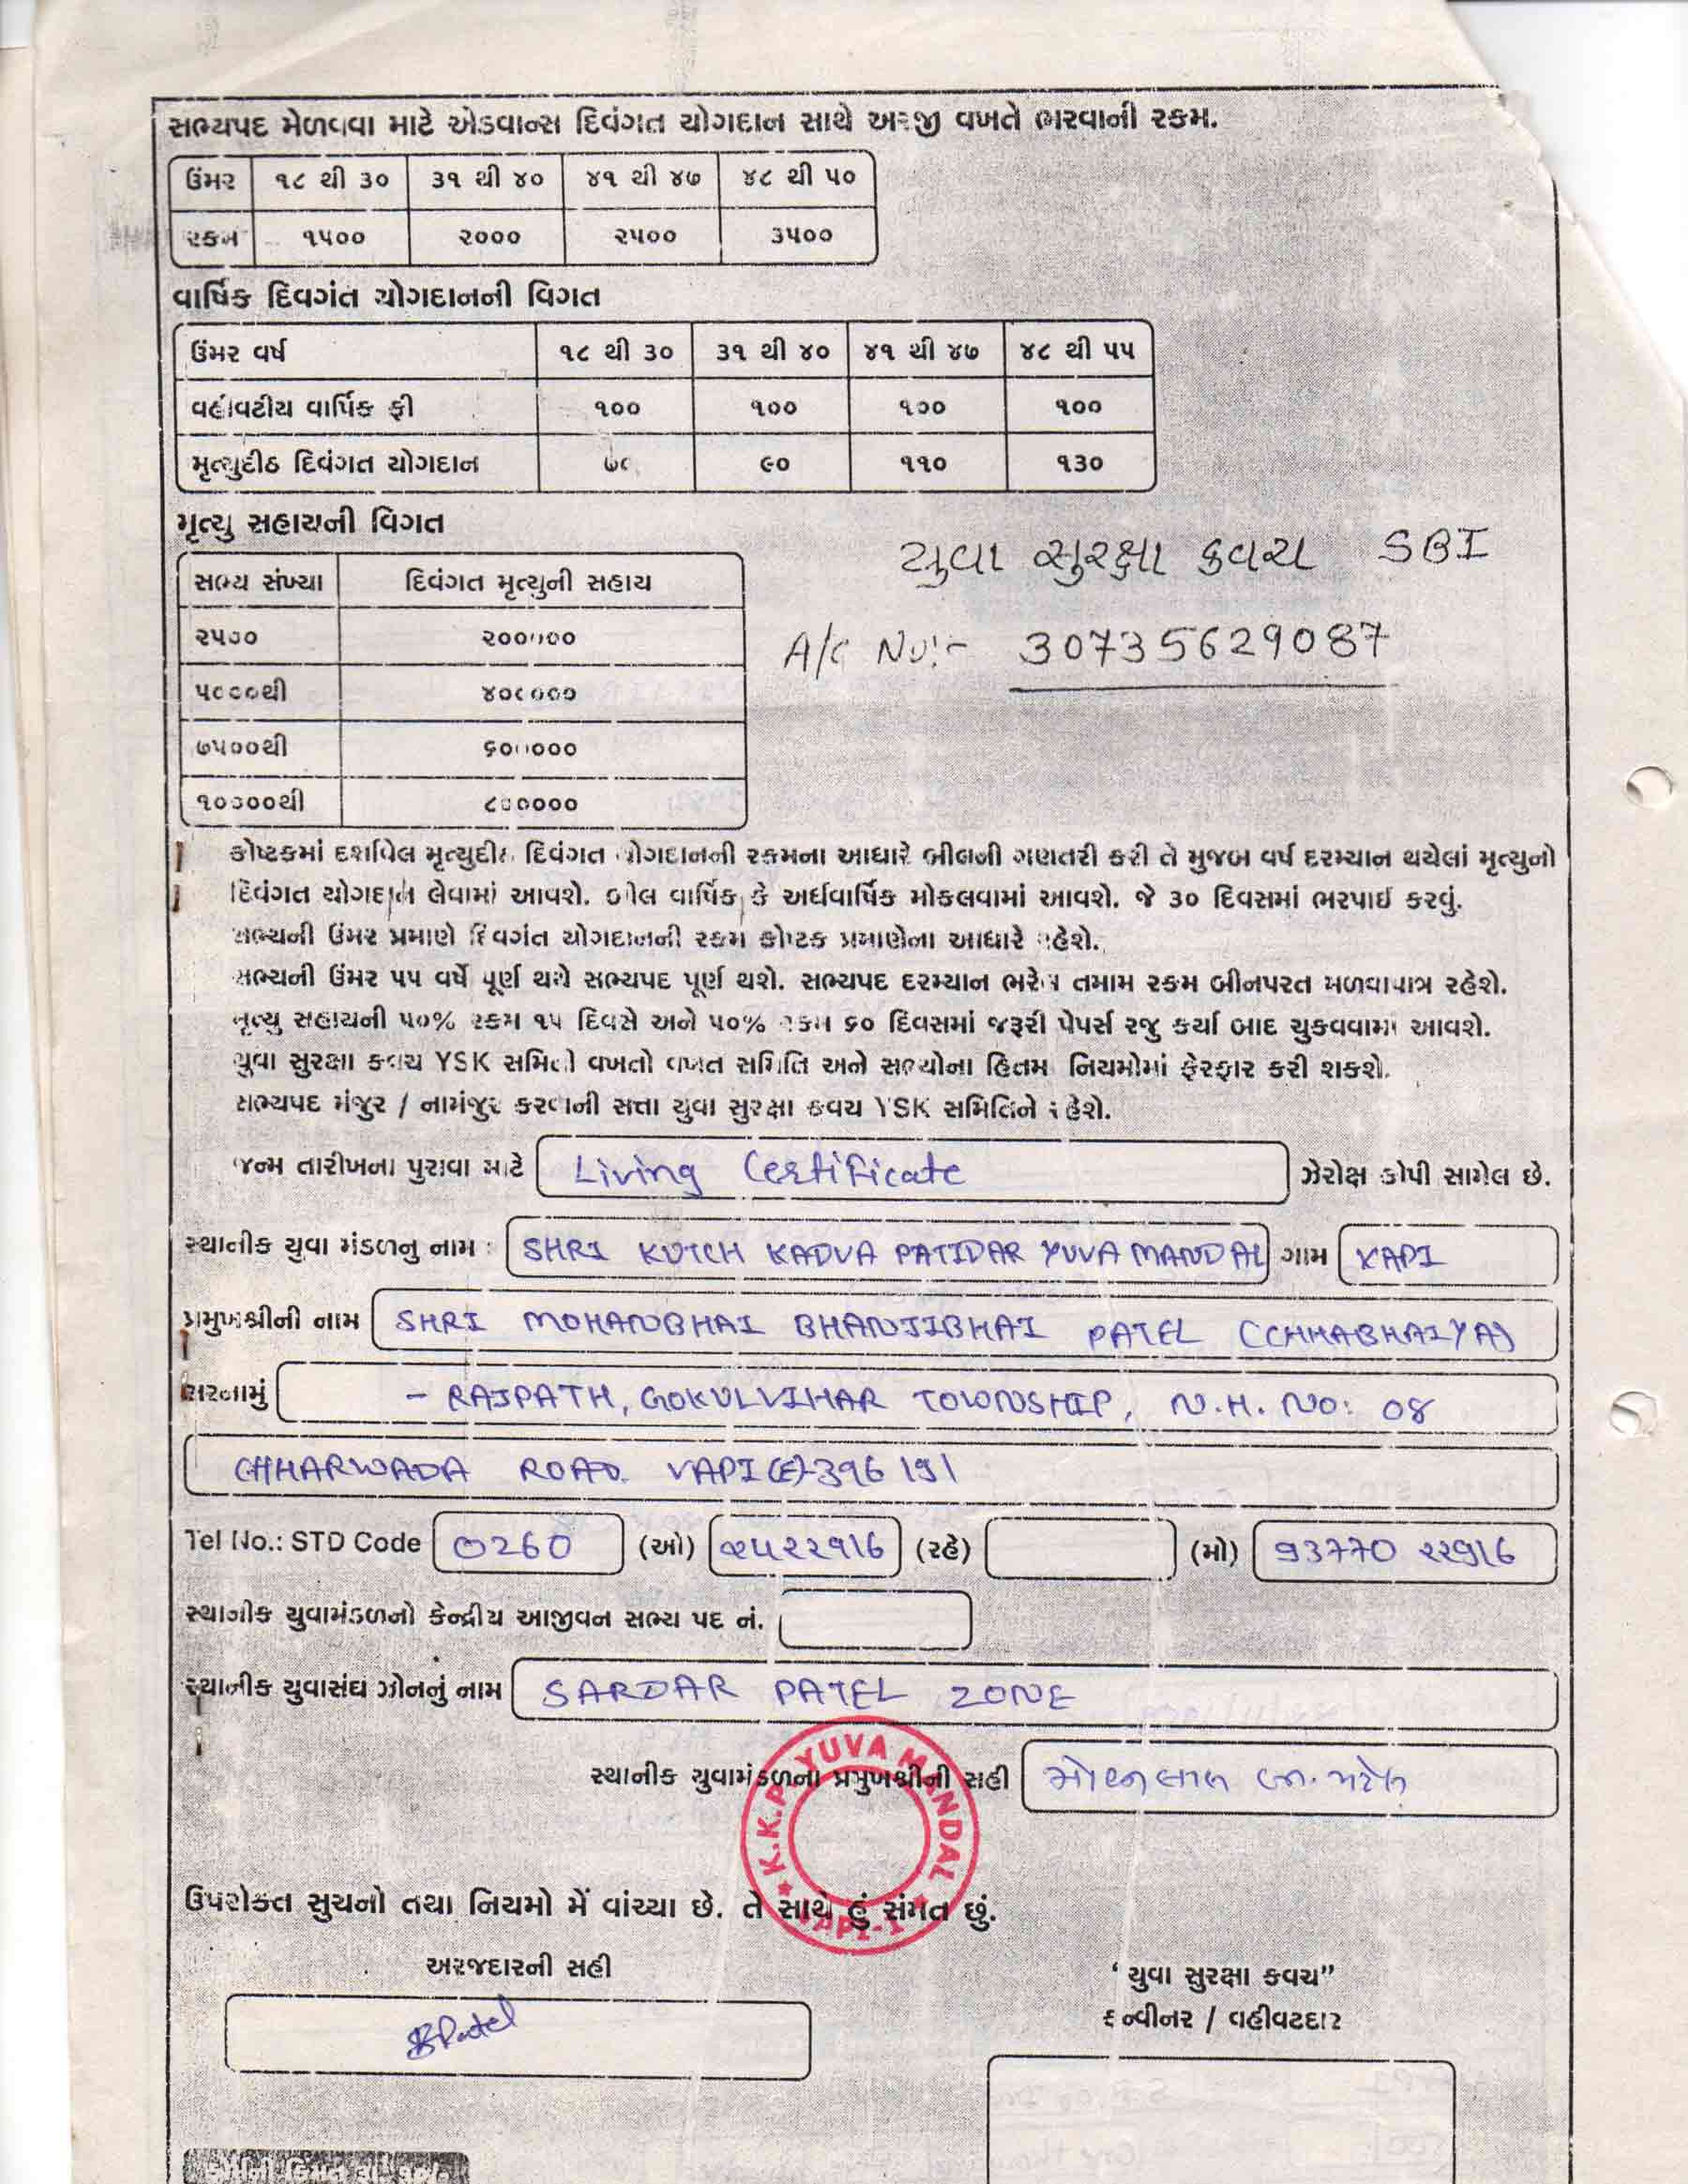 સભ્યપદ મેળવવા માટે એડવાન્સ દિવંગત યોગદાન સાથે અરજી વખતે ભરવાની રકમ.
ઉંમર ૧૮ થી ૩૦ ૩૧ થી ૪૦ ૪૧ થી ૪૭ ૪૮ થી ૫૦
રકમ ૧૫૦૦ ૨૦૦૦ ૨૫૦૦ ૩૫૦૦
વાર્ષિક દિવગંત યોગદાનની વિગત
ઉંમર વર્ષ ૧૮ થી ૩૦ ૩૧ થી ૪૦ ૪૧ થી ૪૭ ૪૮ થી ૫૫
વહીવટીય વાર્ષિક ફી ૧૦૦ ૧૦૦ ૧૦૦ ૧૦૦
મૃત્યુદીઠ દિવંગત યોગદાન ૯૦ ૧૧૦ ૧૩૦
મૃત્યુ સહાયની વિગત
યુવા સુરક્ષા કવચ SBI
સભ્ય સંખ્યા દિવંગત મૃત્યુની સહાય
૨૫૦૦ ૨૦૦૦૦૦
A/C No:- 30735629087
૫૦૦૦થી ૪૦૦૦૦૦
૭૫૦૦થી ૬૦૦૦૦૦
૧૦૦૦૦થી ૮૦૦૦૦૦
કોષ્ટકમાં દર્શાવેલ મૃત્યુદીઠ દિવંગત યોગદાનની રકમના આધારે બીલની ગણતરી કરી તે મુજબ વર્ષ દરમ્યાન થયેલાં મૃત્યુનો
દિવંગત યોગદાન લેવામાં આવશે. બીલ વાર્ષિક કે અર્ધવાર્ષિક મોકલવામાં આવશે. જે ૩૦ દિવસમાં ભરપાઈ કરવું.
સભ્યની ઉંમર પ્રમાણે દિવગંત યોગદાનની રકમ કોષ્ટક પ્રમાણેના આધારે રહેશે.
સભ્યની ઉંમર ૫૫ વર્ષે પૂર્ણ થયે સભ્યપદ પૂર્ણ થશે. સભ્યપદ દરમ્યાન ભરેલ તમામ રકમ બીનપરત મળવાપાત્ર રહેશે.
મૃત્યુ સહાયની ૫૦% રકમ ૧૫ દિવસે અને ૫૦% રકમ ૬૦ દિવસમાં જરૂરી પેપર્સ રજુ કર્યા બાદ ચુકવવામાં આવશે.
યુવા સુરક્ષા કવચ YSK સમિતી વખતો વખત સમિતિ અને સભ્યોના હિતમાં નિયમોમાં ફેરફાર કરી શકશે.
સભ્યપદ મંજુર / નામંજુર કરવાની સત્તા યુવા સુરક્ષા કવચ YSK સમિતિને રહેશે.
જન્મ તારીખના પુરાવા માટે Living Certificate ઝેરોક્ષ કોપી સામેલ છે.
સ્થાનીક યુવા મંડળનુ નામ : SHRI KUTCH KADVA PATIDAR YUVA MANDAL ગામ VAPI
પ્રમુખશ્રીની નામ SHRI MOHANBHAI BHANJIBHAI PATEL (CHHABHAIYA)
સરનામું - RAJPATH, GOKULVIHAR TOWNSHIP, N.H. NO: 08
CHHARWADA ROAD. VAPI (E)-396 191
Tel No.: STD Code 0260 (ઓ) ૨૫૨૨૧16 (રહે) (મો) 93770 ૨૨916
સ્થાનીક યુવામંડળનો કેન્દ્રીય આજીવન સભ્ય પદ નં.
સ્થાનીક યુવાસંઘ ઝોનનું નામ SARDAR PATEL ZONE
સ્થાનીક યુવામંડળના પ્રમુખશ્રીની સહી મોહનલાલ ભા. પટેલ
K.K.P. YUVA MANDAL
VAPI-1
ઉપરોક્ત સુચનો તથા નિયમો મેં વાંચ્યા છે. તે સાથે હું સંમત છું.
અરજદારની સહી
"યુવા સુરક્ષા કવચ"
કન્વીનર / વહીવટદાર
BPatel